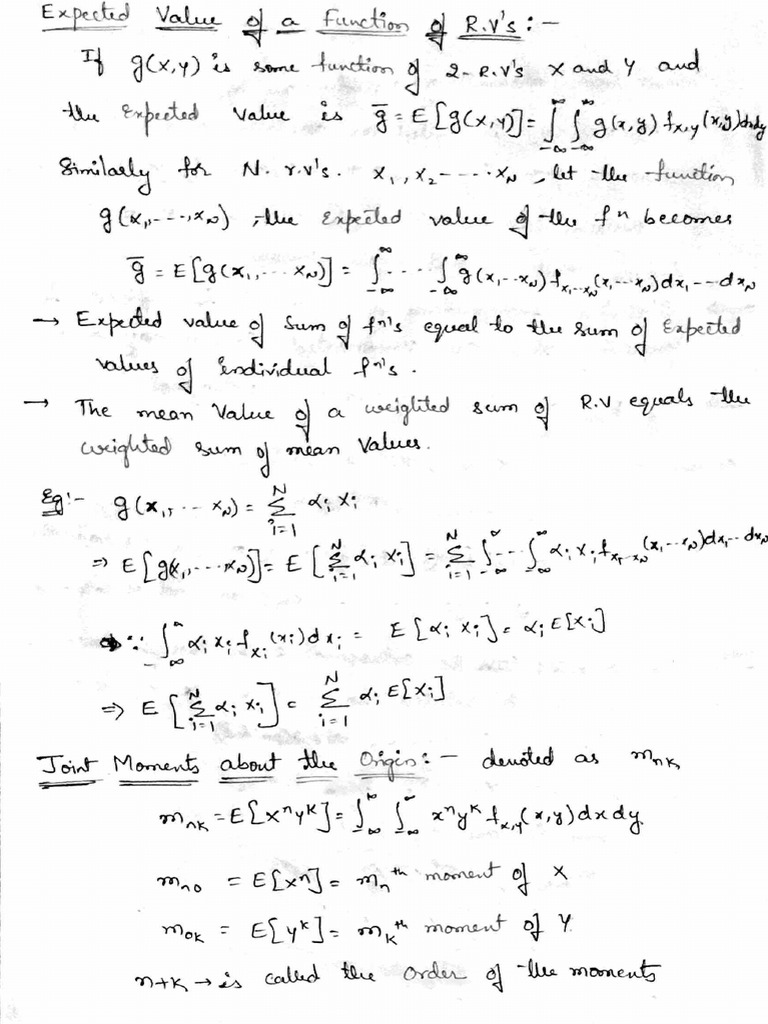 Expected Value of a Function of R.V's :-
If g(x,y) is some function of 2-R.V's X and Y and
the Expected Value is g̅ = E[g(x,y)] = ∫_{-∞}^{∞} ∫_{-∞}^{∞} g(x,y) f_{x,y}(x,y) dx dy
Similarly for N. r.v's. x₁, x₂ ----- x_N, let the function
g(x₁, ---, x_N), the Expected value of the fⁿ becomes
g̅ = E[g(x₁, --- x_N)] = ∫_{-∞}^{∞} ---- ∫_{-∞}^{∞} g(x₁, -- x_N) f_{x₁, --- x_N}(x₁, --- x_N) dx₁ --- dx_N
→ Expected value of Sum of fⁿ's equal to the sum of Expected
values of individual fⁿ's.
→ The mean Value of a weighted sum of R.V equals the
weighted sum of mean Values.
Eg:- g(x₁, --- x_N) = Σ_{i=1}^{N} αᵢ xᵢ
⇒ E[g(x₁, ---- x_N)] = E[Σ_{i=1}^{N} αᵢ xᵢ] = Σ_{i=1}^{N} ∫_{-∞}^{∞} --- ∫_{-∞}^{∞} αᵢ xᵢ f_{x₁ -- x_N}(x₁, --- x_N) dx₁ -- dx_N
∵ ∫_{-∞}^{∞} αᵢ xᵢ f_{xᵢ}(xᵢ) dxᵢ = E[αᵢ xᵢ] = αᵢ E[xᵢ]
⇒ E[Σ_{i=1}^{N} αᵢ xᵢ] = Σ_{i=1}^{N} αᵢ E[xᵢ]
Joint Moments about the Origin :- denoted as m_{nk}
m_{nk} = E[xⁿyᵏ] = ∫_{-∞}^{∞} ∫_{-∞}^{∞} xⁿyᵏ f_{x,y}(x,y) dx dy.
m_{n0} = E[xⁿ] = m_n^{th} moment of X
m_{0k} = E[yᵏ] = m_k^{th} moment of Y.
n+k → is called the order of the moments